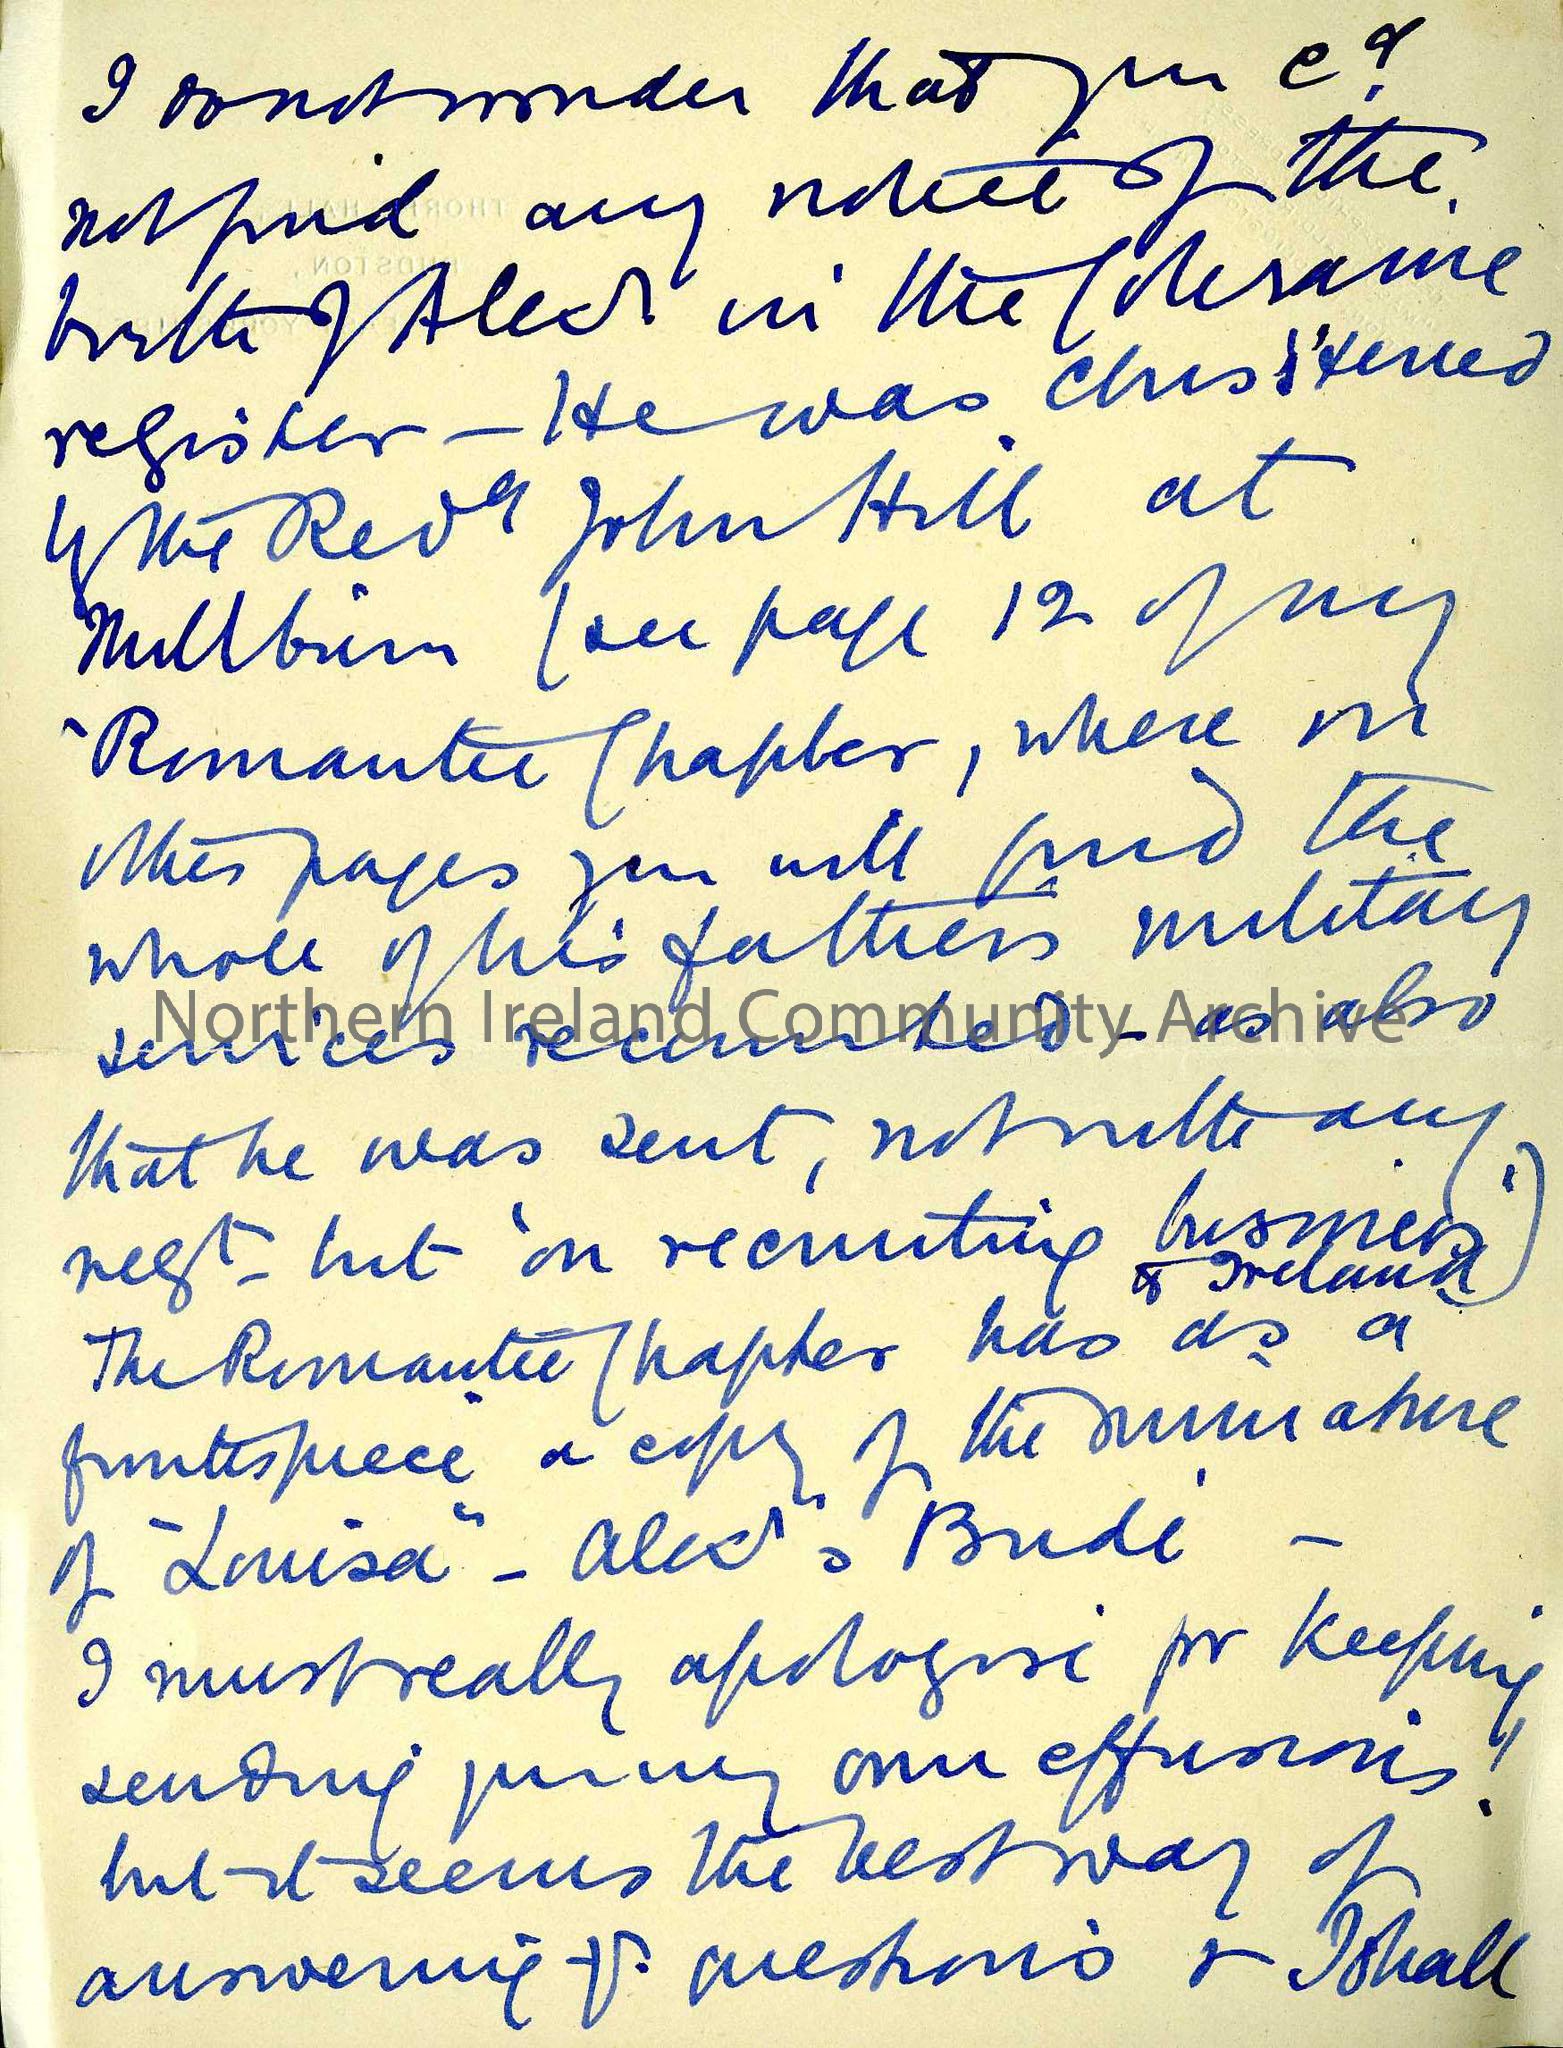 I do not wonder that you cd.
not find any notice of the
birth of Alexr. in the Coleraine
register – He was christened
by the Revd John Hill at
Millburn (see page 12 of my
"Romantic Chapter, where on
other pages you will find the
whole of his fathers military
services recounted – as also
that he was sent, not with any
regt – but 'on recruiting business'
to Ireland)
The Romantic Chapter has as a
frontispiece a copy of the miniature
of "Louisa" – Alexr's Bride –
I must really apologise for keeping
sending you my own effusions!
but it seems the best way of
answering yr. questions & I shall
Northern Ireland Community Archive
THORPE HALL,
RUDSTON,